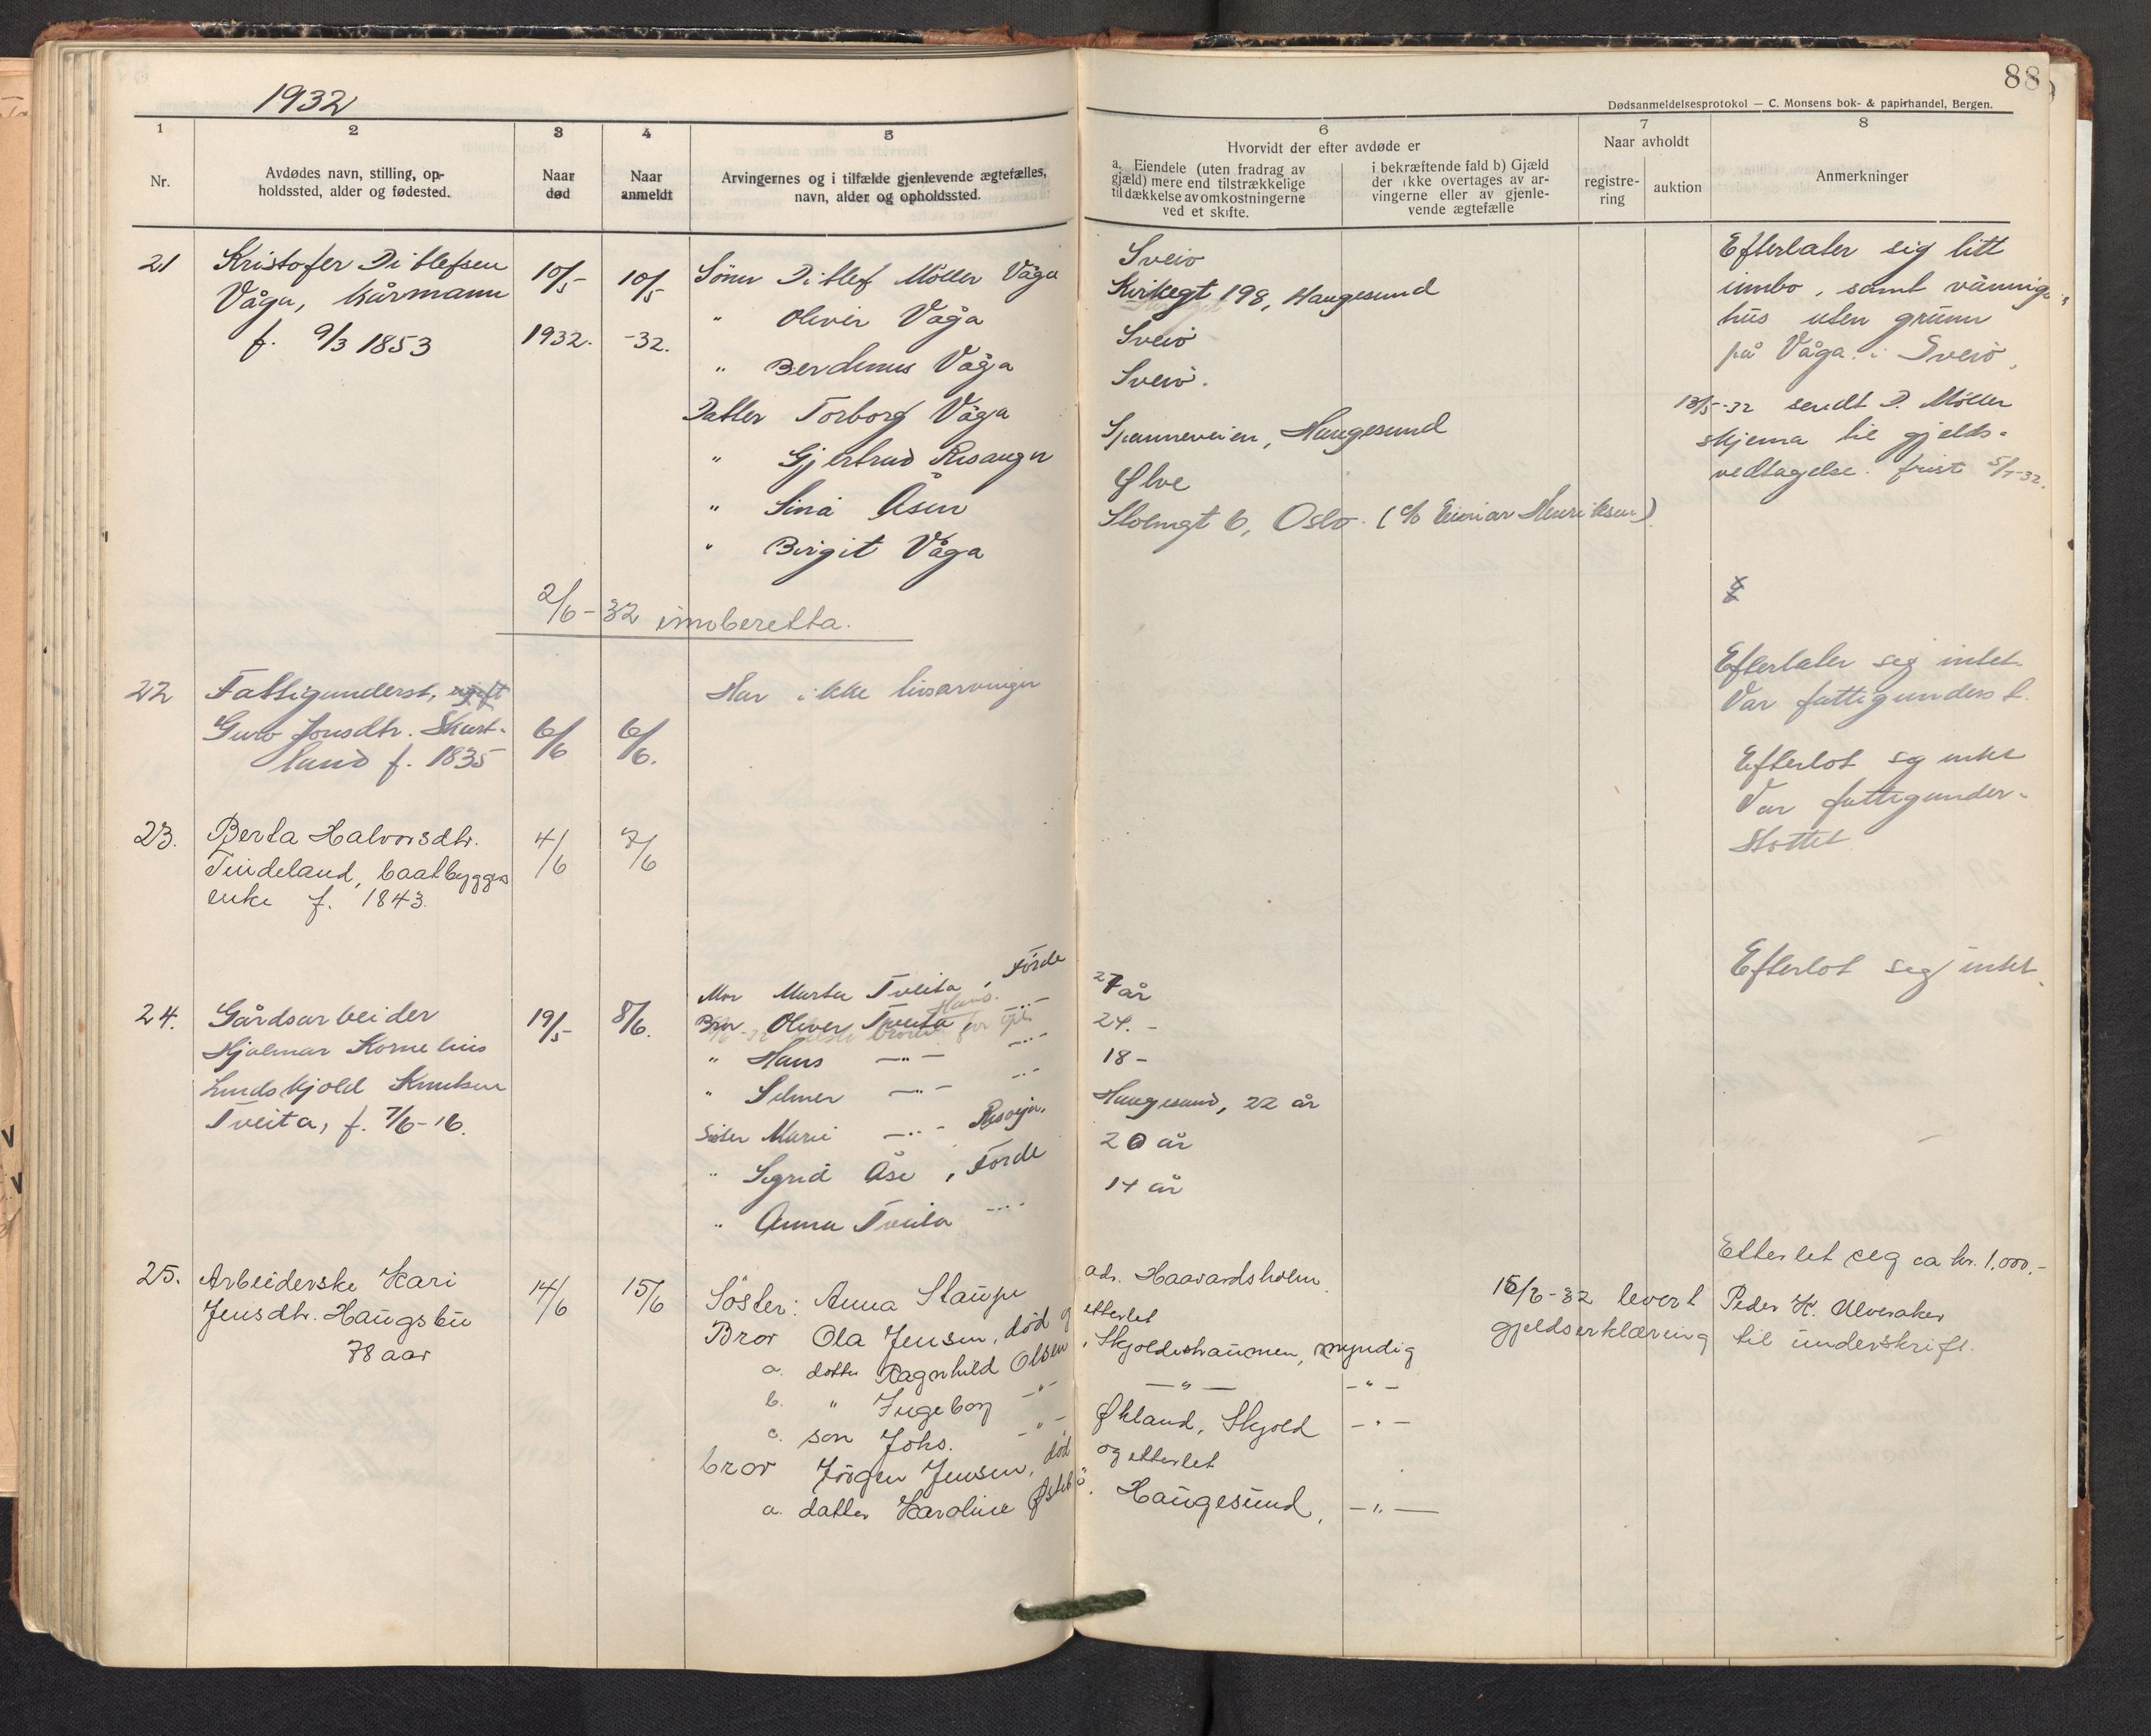 1932
88
Dødsanmeldelsesprotokol — C. Monsens bok- & papirhandel, Bergen.
1
2
3
4
5
6
7
8
Nr.
Avdødes navn, stilling, op-
holdssted, alder og fødested.
Naar
død
Naar
anmeldt
Arvingernes og i tilfælde gjenlevende ægtefælles,
navn, alder og opholdssted.
Hvorvidt der efter avdøde er
a. Eiendele (uten fradrag av
gjæld) mere end tilstrækkelige
til dækkelse av omkostningerne
ved et skifte.
i bekræftende fald b) Gjæld
der ikke overtages av ar-
vingerne eller av gjenle-
vende ægtefælle
Naar avholdt
registre-
ring
auktion
Anmerkninger
21
Kristofer Ditlefsen
Våga, kårmann
f. 9/3 1853
10/5
1932.
10/5
-32.
Sönn Ditlef Möller Våga
" Oliver Våga
" Berdinus Våga
Datter Torborg Våga
" Gjertrud Risanger
" Sina Åsen
" Birgit Våga
Sveio
Kirkegt 198, Haugesund
Sveio
Sveio.
Spanneveien, Haugesund
Ølve
6, Oslo. (c/o Einar Henriksen)
Efterlater sig litt
innbo, samt vånnings
hus uten grunn
på Våga i Sveio.
13/5-32 sendt D. Möller
skjema til gjelds-
vedtagelse. frist 5/7-32.
2/6-32 innberetta.
22
Fattigunderst. ugift
Guro Jonsdtr. Skart-
land f. 1835
6/6
6/6.
Har ikke livsarvinger
Efterlater seg intet
Var fattigunderst.
23.
Berta Halvorsdtr.
Tindeland, baatbygges
enke f. 1843.
4/6
7/6
Efterlot sg intet
Var fattigunder-
støttet
24.
Gårdsarbeider
Hjalmar Kornelius
Lindskjold Knutsen
Tveita, f. 7/6-16.
19/5
8/6.
Mor Marta Tveita, Förde
Bror Oliver Tveita, -"-
" Hans -"- -"-
" Selmer -"- -"-
Söster Marie -"-
" Sigrid Åse, Förde
" Anna Tveita -"-
27 år
24. -
18 -
Haugesund, 22 år
20 år
14 år
Efterlot seg intet
25.
Arbeiderske Kari
Jensdtr. Haugsbü
78 aar
14/6
15/6
Söster: Anna Staupe
Bror Ola Jensen, död og
a. dotter Ragnhild Olsen
b. " Ingeborg -"-
c. son Johs. -"-
bror Jörgen Jensen, död
a. datter Karoline Østebö.
adr. Haavardsholm
etterlet
Skjoldestraumen, myndig
-"- -"-
Økland, Skjold -"-
og etterlet
Haugesund, -"-
Etterlet seg ca kr. 1.000,-
15/6-32 levert Peder K. Ulveraker
gjeldserklæring til underskrift.